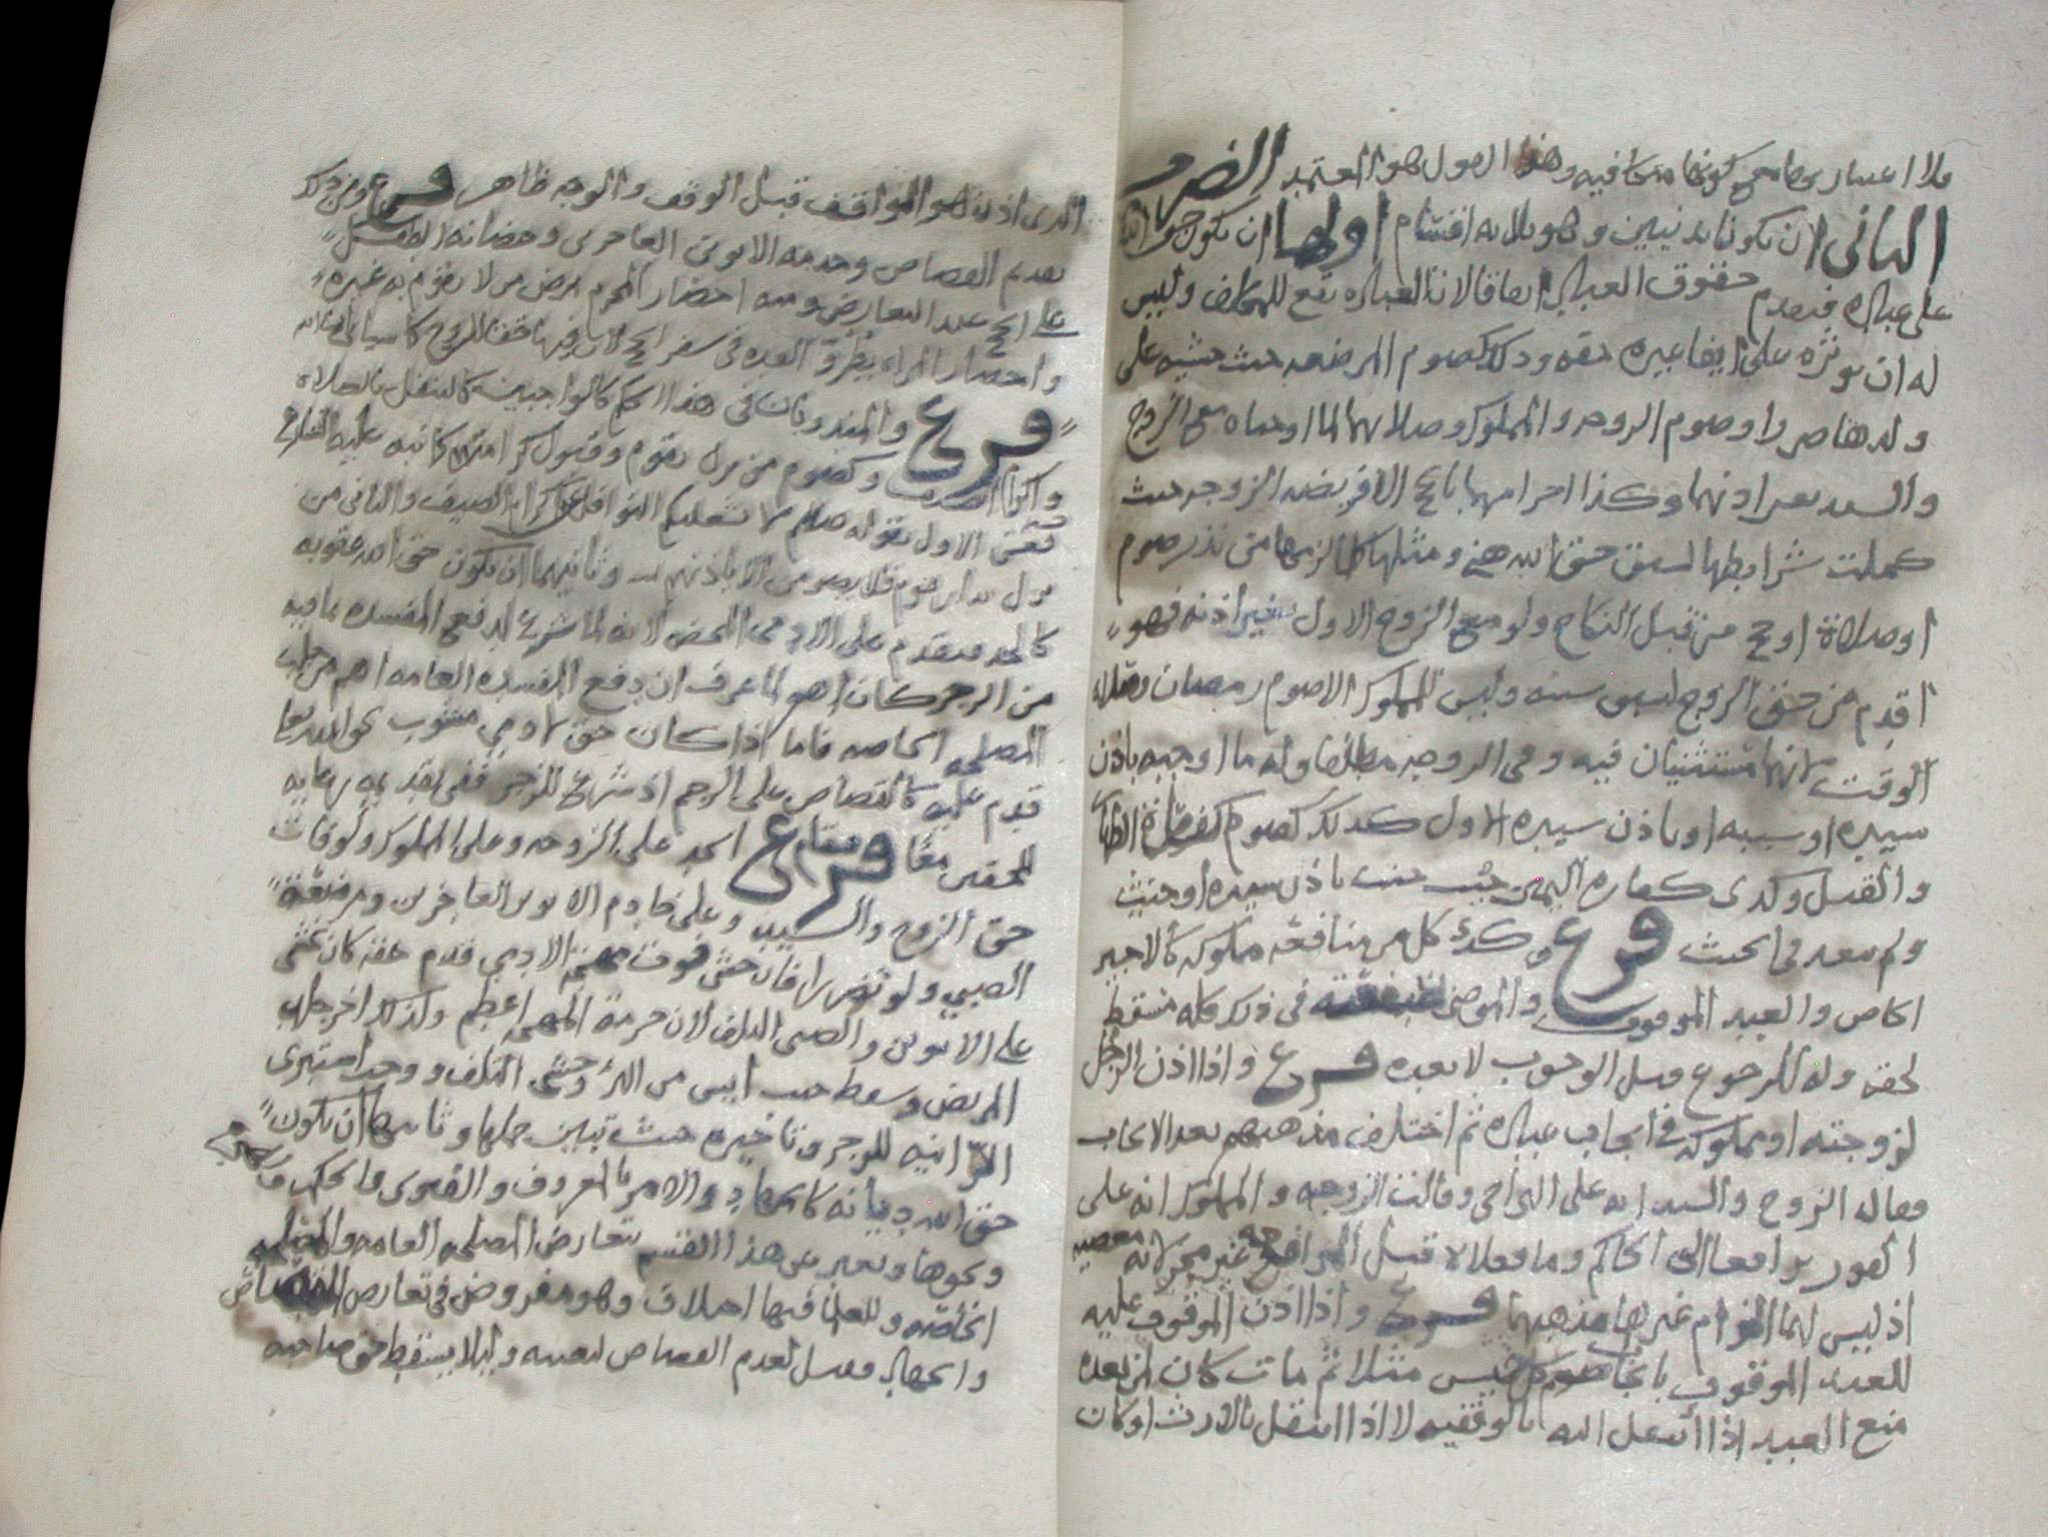 فلا اعتبار بهما مع كونهما فيه وهذا القول هو المعتمد الضرب
الثاني ان يكونا بدنيين وهو ثلاثه اقسام اولها ان يكون حق الله
على عباده فيقدم حقوق العباد اتفاقا لان العباده تقع للمكلف وليس
له ان يوثره على ايفا غيره حقه وذلك كصوم المرضعه حيث خشيه على
ولدها ضررا وصوم الزوجه والمملوك وصلاتهما لما اوجباه مع الزوج
والسيد بغير اذنهما وكذا احرامهما بالحج الا فريضه الزوجه حيث
كملت شرايطها لسبق حق الله هنا ومثلها كلما لزمها من نذر صوم
او صلاة او حج من قبل النكاح ولو مع الزوج الاول بغير اذنه فهو
اقدم من حق الزوج لسبق سببه وليس للمملوك الا صوم رمضان وصلاة
الوقت لانهما مستثنيان فيه وفي الزوجه مطلقا وله ما اوجبه باذن
سيده او سببه او باذن سيده الاول كذلك كصوم كفارة الظهار
والقتل وكذى كفاره اليمين حيث حنث باذن سيده او حنث
ولم يتعد في الحنث فرع وكذى كل من منافعه مملوكه كالاجير
الخاص والعبد الموقوف والموصى بمنفعته في ذلك كله مسقط
لحقه وله الرجوع قبل الوجوب لا بعده فرع واذا اذن الرجل
لزوجته او مملوكه في ايجاب عباده ثم اختلف مذهبهم بعد الايجاب
فقال الزوج والسيد انه على التراخي وقالت الزوجه والمملوك انه على
الفور ترافعا الى الحاكم وما فعلا قبل المرافعه غير مجز لانه معصيه
اذ ليس لهما الزام غيرهما مذهبهما فرع واذا اذن الموقوف عليه
للعبد الموقوف بايجاب صوم كل خميس مثلا ثم مات كان لمن بعده
منع العبد اذا انتقل اليه بالوقفيه لا اذا انتقل بالارث او كان
الذي اذن هو الواقف قبل الوقف والوجه ظاهر فرع ومن ذلك
تقديم القصاص وخدمه الابوين العاجزين وحضانه الطفل
على الحج عند التعارض ومنه احضار المحرم مرض من لا يقوم به غيره
واحضار المراه بطروق العده في سفر الحج لان فيها حقا للزوج كما سياتي ان شا الله
فرع والمندوبات في هذا الحكم كالواجبين كالتنفل بالصلاه
واكرام الضيف وكصوم من نزل بقوم وقبول كرامتهم كما نبه عليه الشارع
في الاول بقوله صلعم لا تشغلكم النوافل عن اكرام الضيف والثاني من
نزل بدار قوم فلا يصومن الا باذنهم وثانيهما ان تكون حق الله عقوبه
كالحد فيقدم على الادمي المحض لانه لما شرع لدفع المفسده بما فيه
من الزجر كان اهم لما عرف ان دفع المفسده العامه اهم من جلب
المصلحه الخاصه فاما اذا كان حق الادمي مشوب بحق الله تعالى
قدم عليه كالقصاص على الرجم اذ شرع للزجر ففي تقديمه رعايه
للحقين معا فرع فيقام الحد على الزوجه وعلى المملوك ولو فات
حق الزوج والسيد وعلى خادم الابوين العاجزين ومرضعة
الصبي ولو تضررا فان خشي فوت مهجة الادمي قدم حقه كان يخشى
على الابوين والصبي التلف لان حرمة المهجه اعظم ولذلك اخر جلد
المريض وسقط حيث ايس من البرء وخشي التلف ووجب استبرى
الزانيه للزجر وتاخيره حيث تبين حملها وثالثها ان تكون
حق الله ديانه كالجهاد والامر بالمعروف والفتوى والحكم
ونحوها ويعبر عن هذا القسم بتعارض المصلحه العامه والمصلحه
الخاصه وللعلما فيها اختلاف وهو مفروض في تعارض القصاص
والجهاد وقيل يقدم القصاص لتعينه وليلا يسقط حق صاحبه